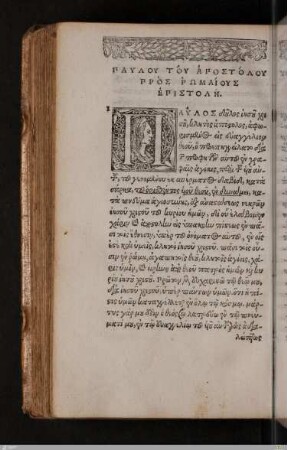 ΠΑΥΛΟΥ ΤΟΥ ΑΠΟΣΤΟΛΟΥ
ΠΡΟΣ ΡΩΜΑΙΟΥΣ
ΕΠΙΣΤΟΛΗ.
ΠΑΥΛΟΣ δοῦλος ἰησοῦ χρι
στοῦ, κλητὸς ἀπόστολος, ἀφω
ρισμένος εἰς εὐαγγέλιον
θεοῦ, ὃ προεπηγγείλατο διὰ
τῶν προφητῶν αὐτοῦ ἐν γρα
φαῖς ἁγίαις, περὶ τοῦ ὑοῦ αὐ
τοῦ, τοῦ γενομένου ἐκ σπέρματος δαβὶδ, κατὰ
σάρκα, τοῦ ὁρισθέντος ὑοῦ θεοῦ, ἐν δυνάμει, κα
τὰ πνεῦμα ἁγιωσύνης, ἐξ ἀναστάσεως νεκρῶν
ἰησοῦ χριστοῦ τοῦ κυρίου ἡμῶν, δι' οὗ ἐλάβομεν
χάριν καὶ ἀποστολὴν εἰς ὑπακοὴν πίστεως ἐν πᾶ
σι τοῖς ἔθνεσιν, ὑπὲρ τοῦ ὀνόματος αὐτοῦ, ἐν οἷς
ἐστε καὶ ὑμεῖς, κλητοὶ ἰησοῦ χριστοῦ, πᾶσι τοῖς οὖ
σιν ἐν ῥώμῃ, ἀγαπητοῖς θεοῦ, κλητοῖς ἁγίοις, χάρις
ὑμῖν, καὶ εἰρήνη ἀπὸ θεοῦ πατρὸς ἡμῶν, καὶ κυ
ρίου ἰησοῦ χριστοῦ. Πρῶτον μὲν, εὐχαριστῶ τῷ θεῷ μου,
διὰ ἰησοῦ χριστοῦ, ὑπὲρ πάντων ὑμῶν, ὅτι ἡ πίσ
τις ὑμῶν καταγγέλλεται ἐν ὅλῳ τῷ κόσμῳ. μάρ
τυς γάρ μου ἐστὶν ὁ θεὸς, ᾧ λατρεύω ἐν τῷ πνεύ
ματί μου, ἐν τῷ εὐαγγελίῳ τοῦ ὑοῦ αὐτοῦ, ὡς ἀδια
λείπτως